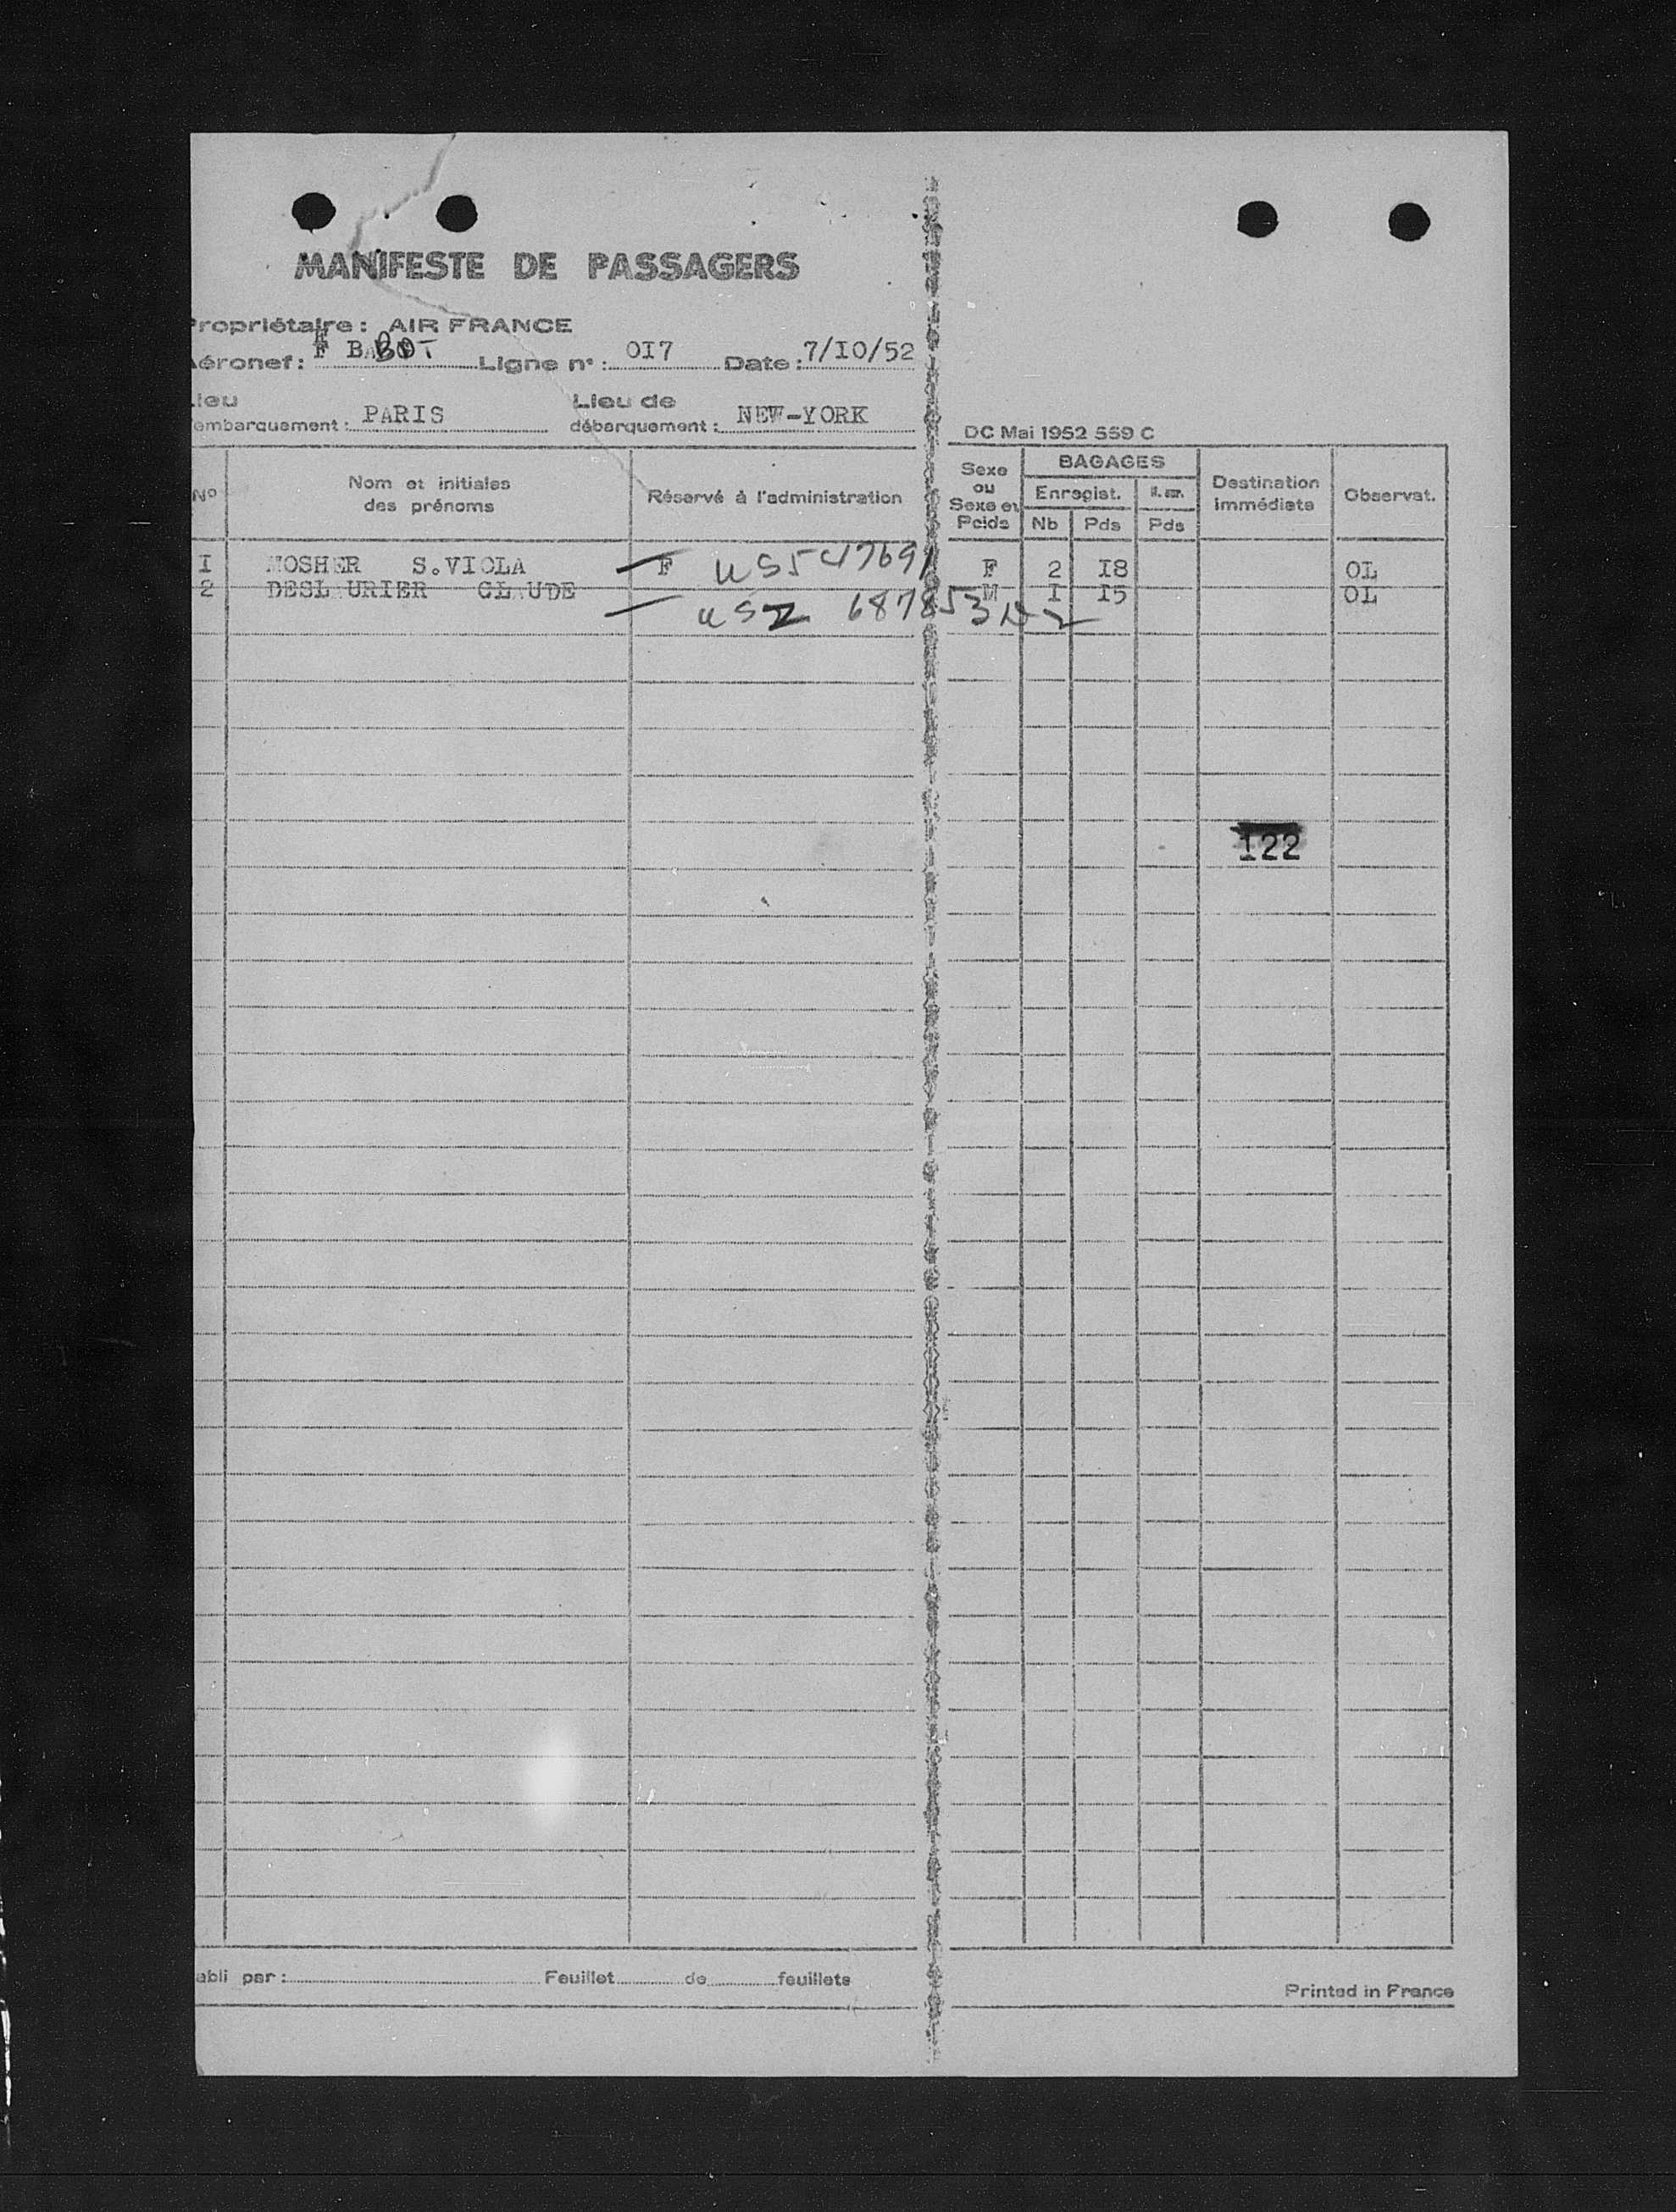 MANIFESTE DE PASSAGERS
ropriétaire : AIR FRANCE
éronef : F Ligne n° : OI7 Date : 7/IO/52
ieu embarquement : PARIS Lieu de débarquement : NEW-YORK
DC Mai 1952 559 C
N° Nom et initiales des prénoms Réservé à l'administration Sexe ou Sexe et Poids BAGAGES Enregist. Nb Pds Pds Destination immédiate Observat.
I MOSHER S.VIOLA F US 547691 F 2 I8 OL
2 DESLAURIER CLAUDE US 687853 M I I5 OL
122
abli par : Feuillet de feuillets
Printed in France